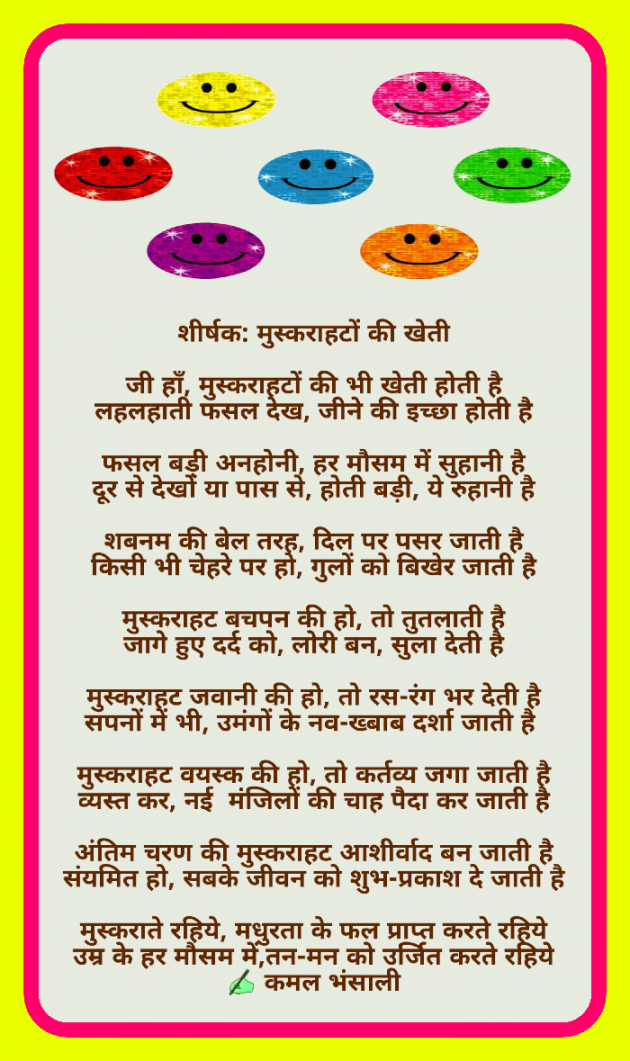 शीर्षक: मुस्कराहटों की खेती
जी हाँ, मुस्कराहटों की भी खेती होती है
लहलहाती फसल देख, जीने की इच्छा होती है
फसल बड़ी अनहोनी, हर मौसम में सुहानी है
दूर से देखों या पास से, होती बड़ी, ये रुहानी है
शबनम की बेल तरह, दिल पर पसर जाती है
किसी भी चेहरे पर हो, गुलों को बिखेर जाती है
मुस्कराहट बचपन की हो, तो तुतलाती है
जागे हुए दर्द को, लोरी बन, सुला देती है
मुस्कराहट जवानी की हो, तो रस-रंग भर देती है
सपनों में भी, उमंगों के नव-ख्बाब दर्शा जाती है
मुस्कराहट वयस्क की हो, तो कर्तव्य जगा जाती है
व्यस्त कर, नई  मंजिलों की चाह पैदा कर जाती है
अंतिम चरण की मुस्कराहट आशीर्वाद बन जाती है
संयमित हो, सबके जीवन को शुभ-प्रकाश दे जाती है
मुस्कराते रहिये, मधुरता के फल प्राप्त करते रहिये
उम्र के हर मौसम में,तन-मन को उर्जित करते रहिये
✍ कमल भंसाली